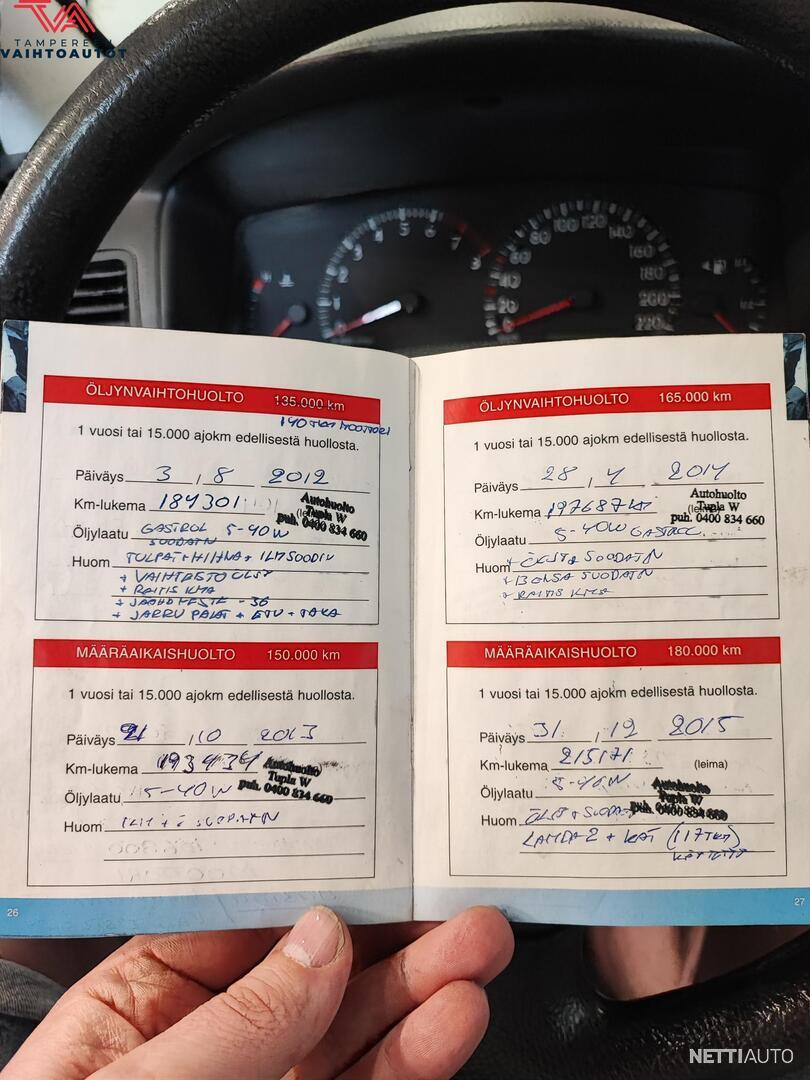 TAMPEREEN
VAIHTOAUTOT
ÖLJYNVAIHTOHUOLTO 135.000 km
140 TKM MOOTTORI
1 vuosi tai 15.000 ajokm edellisestä huollosta.
Päiväys 3 / 8 2012
Km-lukema 184301 (leima)
Autohuolto
Tupla W
puh. 0400 834 660
Öljylaatu CASTROL 5-40W
SUODATIN
Huom TULPAT + HIHNA + ILM SOODIN
+ VAIHTEISTO ÖLJY
+ RAITIS ILMA
+ JÄÄHD NESTE -36
+ JARRU PALAT + ETU + TAKA
MÄÄRÄAIKAISHUOLTO 150.000 km
1 vuosi tai 15.000 ajokm edellisestä huollosta.
Päiväys 21 / 10 2013
Km-lukema 193434
Autohuolto
Tupla W
puh. 0400 834 660
Öljylaatu 5-40W
Huom ILM + Ö SUODATIN
26
ÖLJYNVAIHTOHUOLTO 165.000 km
1 vuosi tai 15.000 ajokm edellisestä huollosta.
Päiväys 28 / 4 2014
Km-lukema 197687 KM (leima)
Autohuolto
Tupla W
puh. 0400 834 660
Öljylaatu 5-40W CASTROL
Huom + ÖLJY + SUODATIN
+ BENSA SUODATIN
+ RAITIS ILMA
MÄÄRÄAIKAISHUOLTO 180.000 km
1 vuosi tai 15.000 ajokm edellisestä huollosta.
Päiväys 31 / 12 2015
Km-lukema 215171 (leima)
Öljylaatu 5-40W
Autohuolto
Tupla W
puh. 0400 834 660
Huom ÖLJY + SUODAT
LAMDA 2 + KAT (117TKM)
27
1 2 3 4 5 6 7 8
0 20 40 60 80 100 120 140 160 180 200 220
NETTIAUTO